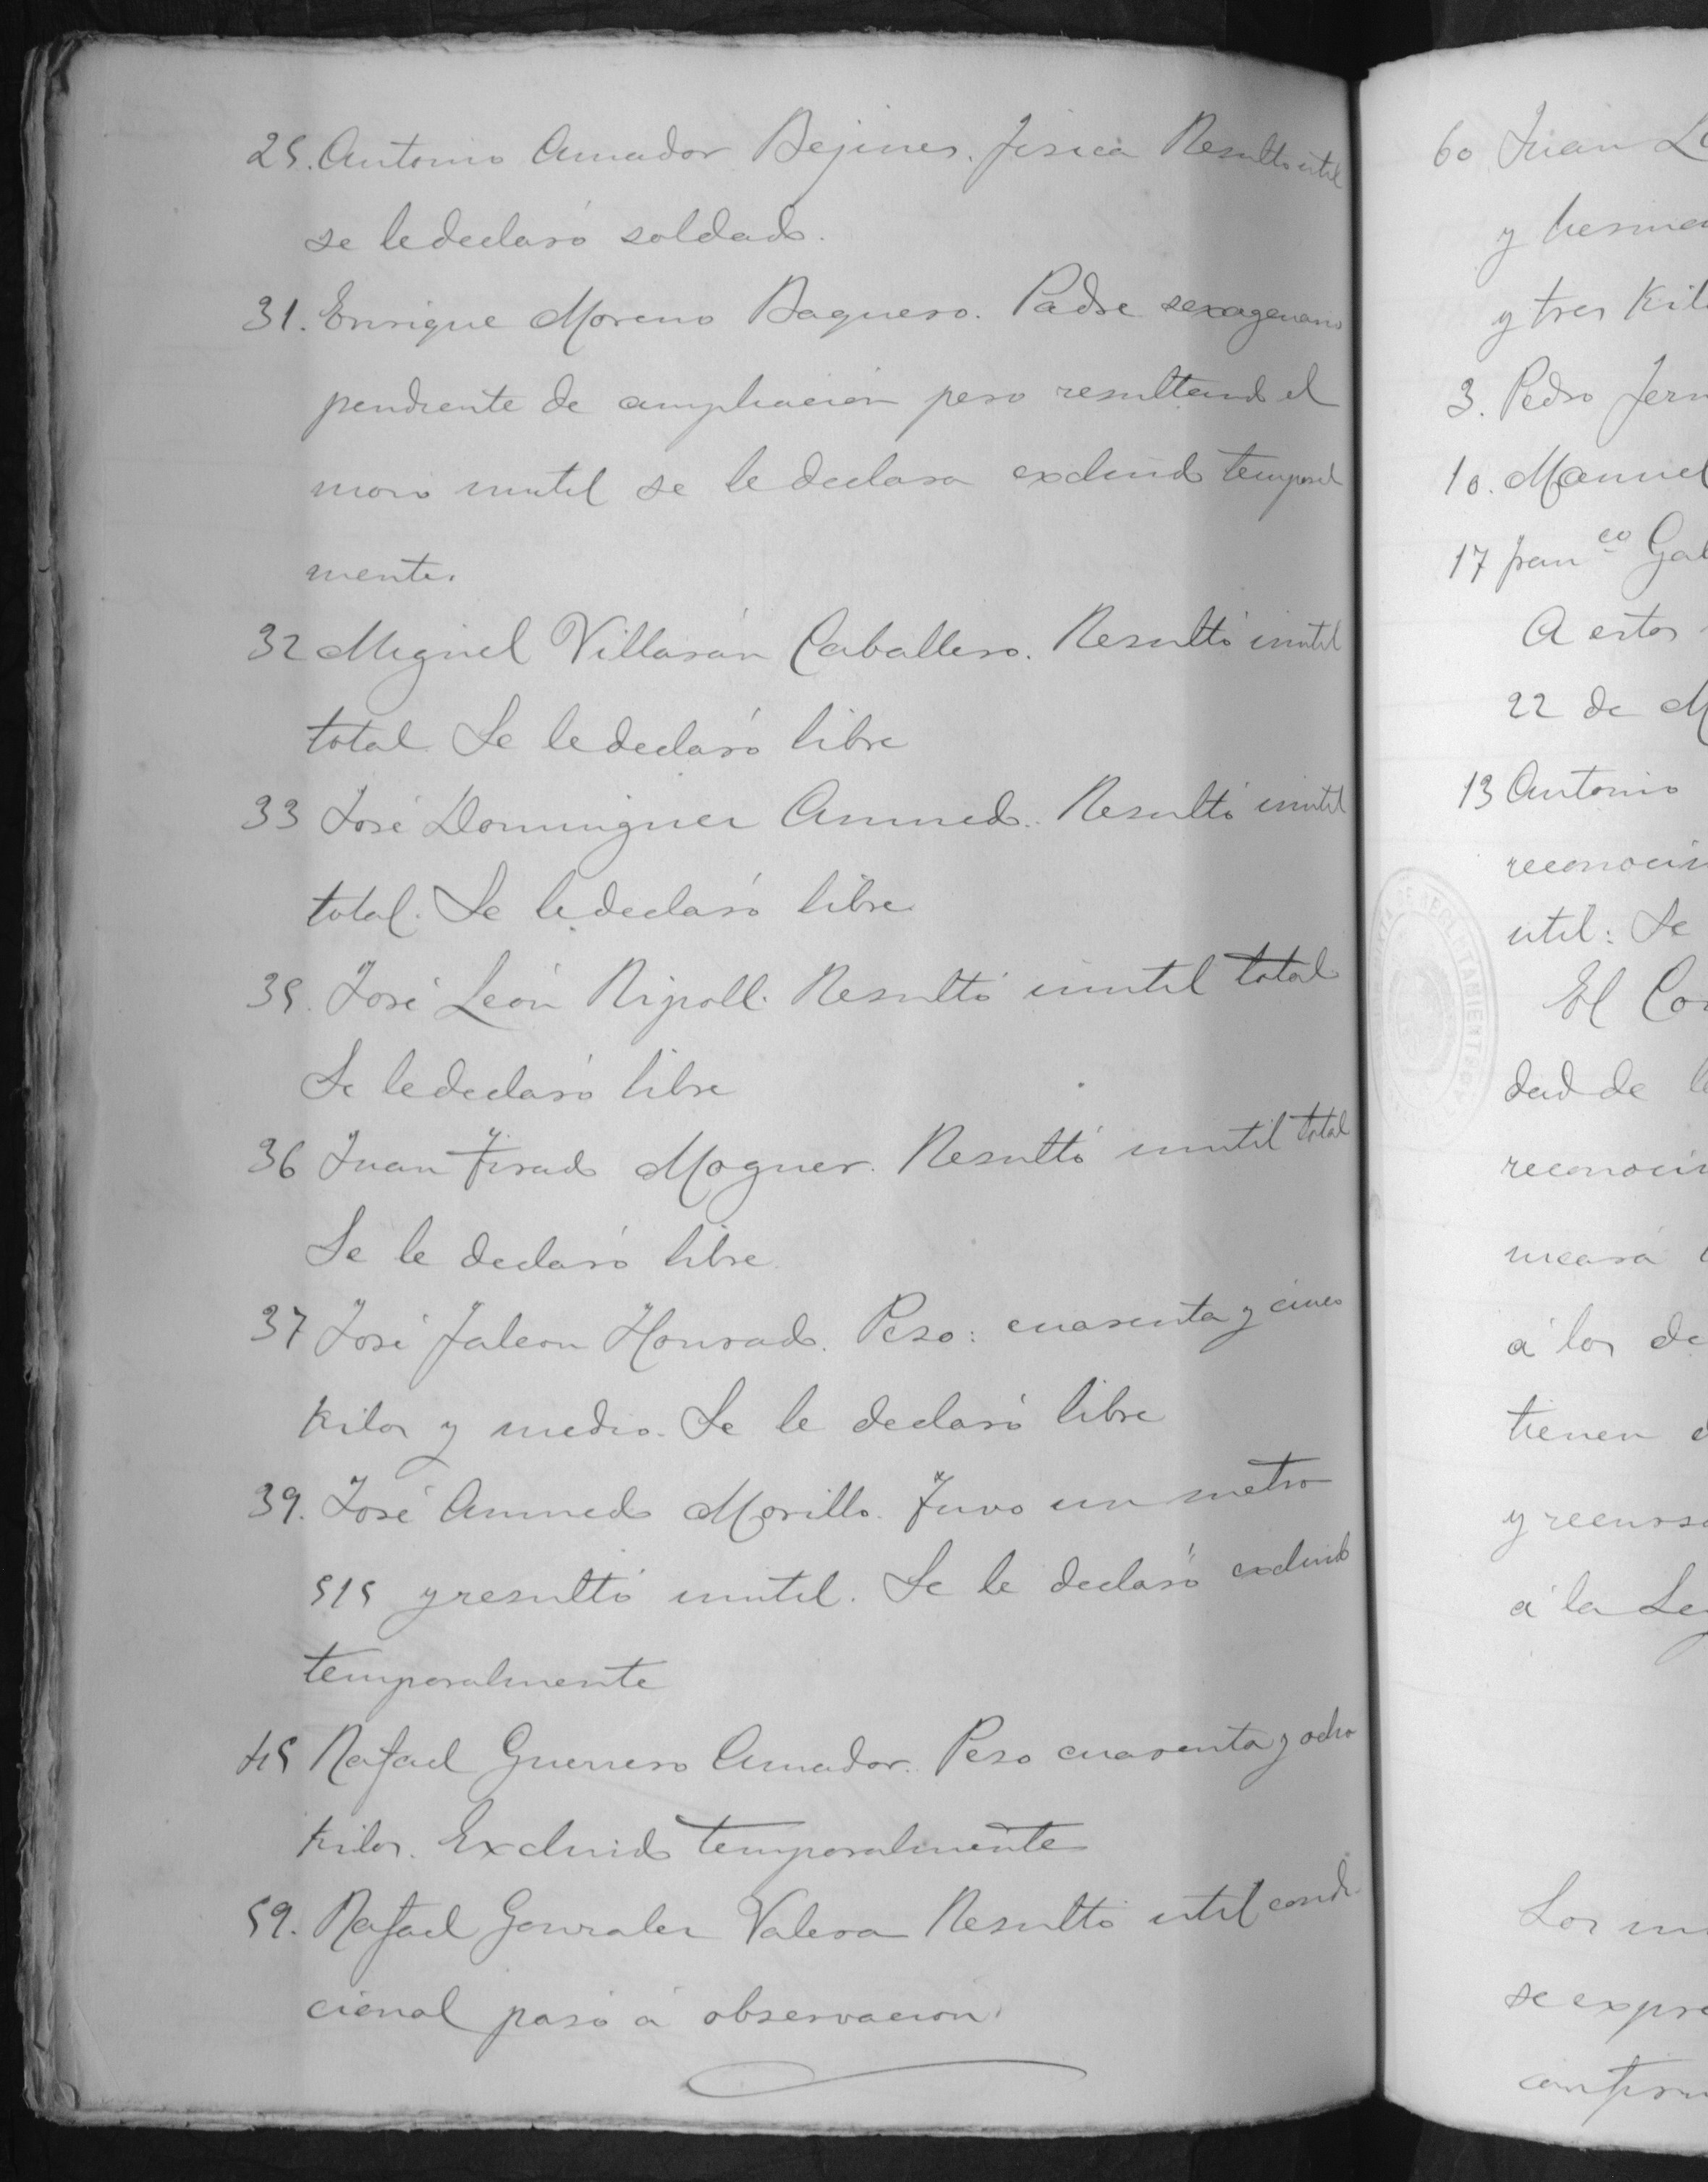 25. Antonio Amador Bejines. Fisica Resultó util
se le declaró soldado.
31. Enrique Moreno Baquero. Padre sexagenario
pendiente de ampliación pero resultando el
mozo inutil se le declara excluido temporal
mente.
32 Miguel Villarán Caballero. Resultó inutil
total. Se le declaró libre
33 José Dominguez Ahumedo. Resultó inutil
total. Se le declaró libre
35. José León Ripoll. Resultó inutil total
Se le declaró libre
36 Juan Tirado Moguer. Resultó inutil total
Se le declaró libre.
37 José Falcon Honrado. Peso: cuarenta y cinco
kilos y medio. Se le declaró libre
39. José Morillo. Tuvo un metro
515 y resultó inutil. Se le declaró excluido
temporalmente
45 Rafael Guerrero Amador. Peso cuarenta y ocho
kilos. Excluido temporalmente
59. Rafael Gonzalez Valera Resultó util condi
cional pasó á observacion.
60 Juan
y
y tres Kil
3. Pedro Fern
10. Manuel
17 Fran co Gal
A estos
22 de M
13 Antonio
reconoci
util: Se
El Co
dad de l
reconoci
á los de
tienen
y recurso
á la Le
Los
se expre
confirm